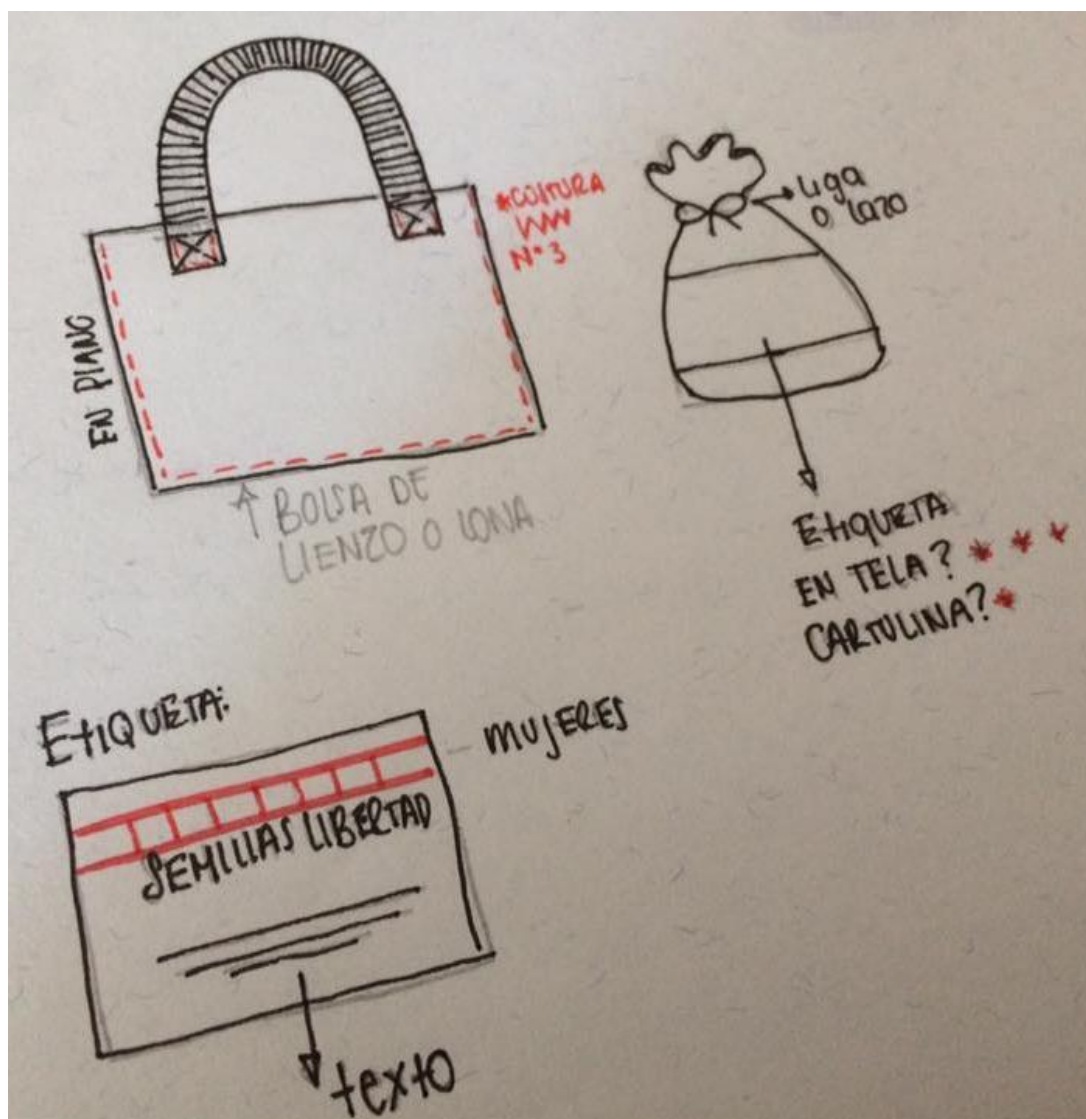 *COSTURA
N°3
LIGA
O LAZO
EN PLANO
↑ BOLSA DE
LIENZO O LONA
ETIQUETA
EN TELA? * * *
CARTULINA? *
ETIQUETA:
MUJERES
SEMILLAS LIBERTAD
texto